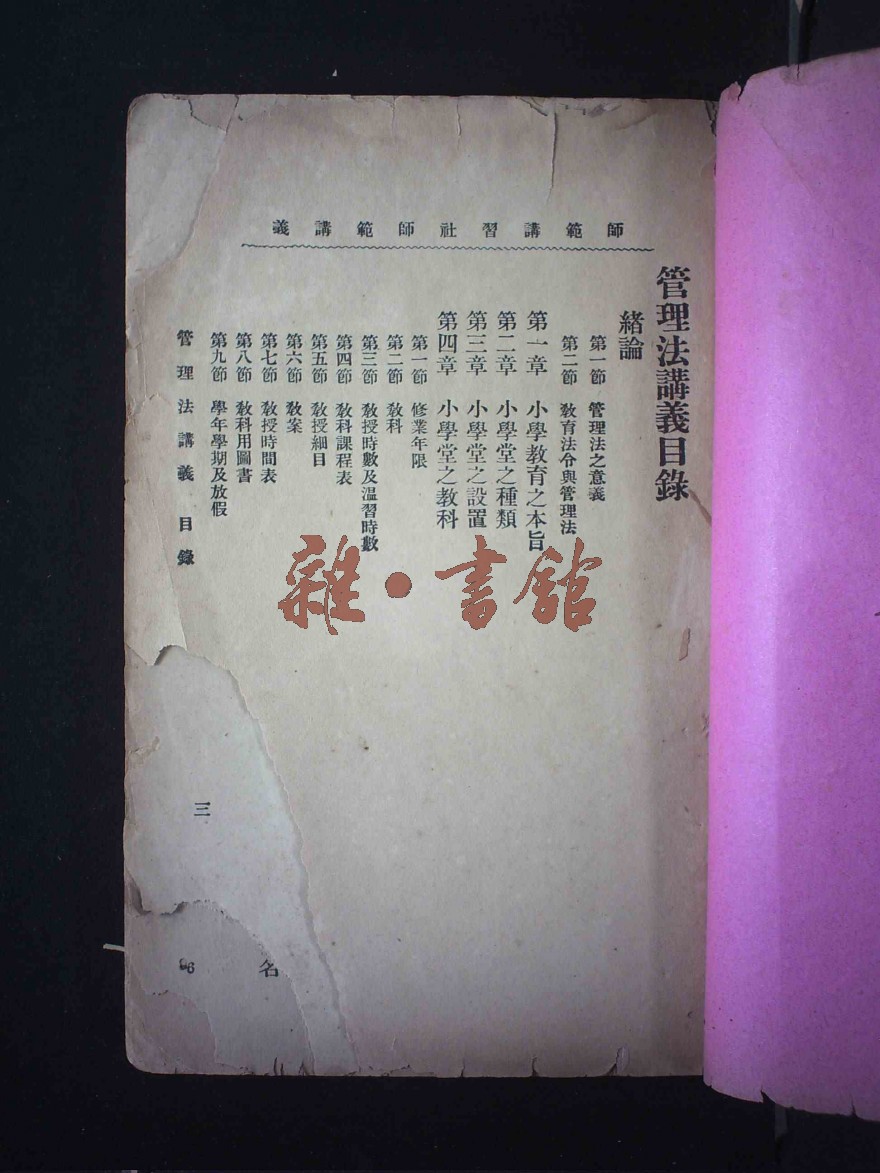 師範講習社師範講義
管理法講義目錄
緒論
第一節　管理法之意義
第二節　教育法令與管理法
第一章　小學教育之本旨
第二章　小學堂之種類
第三章　小學堂之設置
第四章　小學堂之教科
第一節　修業年限
第二節　教科
第三節　教授時數及溫習時數
第四節　教科課程表
第五節　教授細目
第六節　教案
第七節　教授時間表
第八節　教科用圖書
第九節　學年學期及放假
管理法講義　目錄
三
名
雜·書館